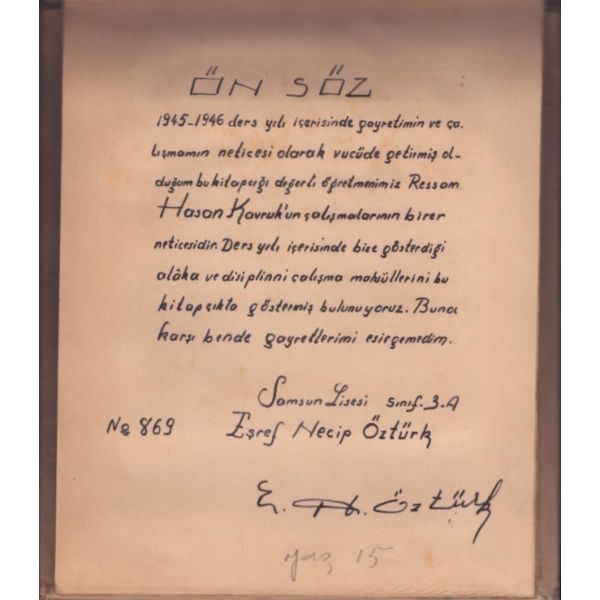 ÖN SÖZ
1945-1946 ders yılı içerisinde gayretimin ve ça-
lışmamın neticesi olarak vucüde getirmiş ol-
duğum bu kitapcığı değerli öğretmenimiz Ressam
Hasan Kavruk'un çalışmalarının birer
neticesidir. Ders yılı içerisinde bize gösterdiği
alâka ve disiplinni çalışma mahsüllerini bu
kitapçıkta göstermiş bulunuyoruz. Buna
karşı bende gayretlerimi esirgemedim.
Samsun Lisesi Sınıf-3-A
No 869 Eşref Necip Öztürk
E. N. Öztürk
yaş 15